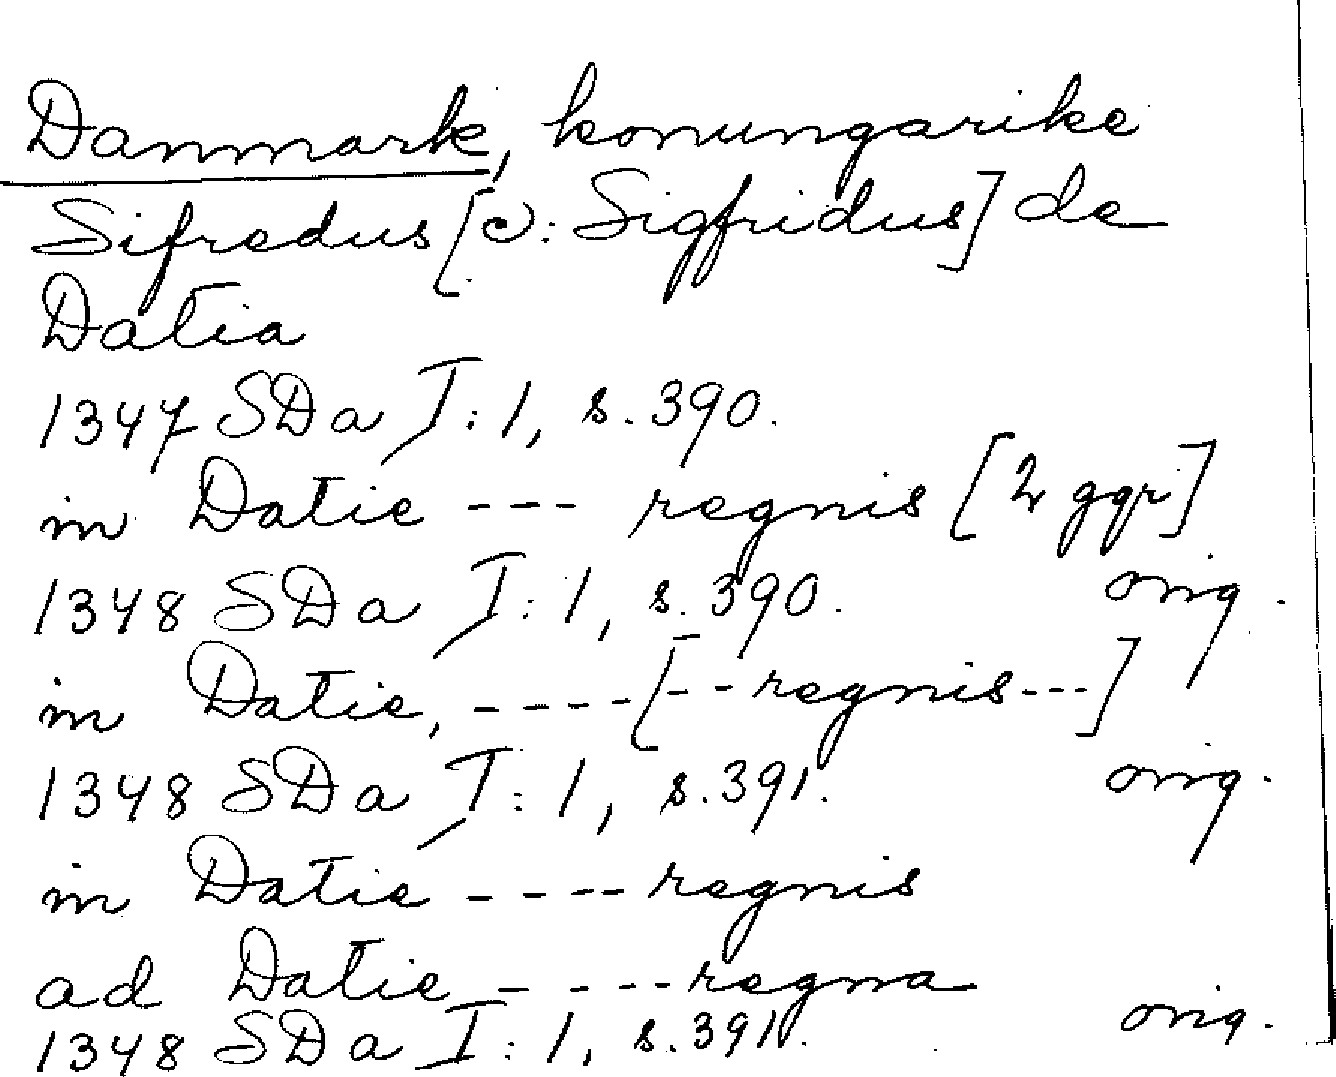 Danmark, konungarike
Sifredus [ɔ: Sigfridus] de
Datia
1347 SDa I:1, s. 390.
in Datie --- regnis [2 ggr]
1348 SDa I:1, s. 390. orig.
in Datie, ----[--regnis---]
1348 SDa I:1, s. 391. orig.
in Datie ---- regnis
ad Datie - - -- regna
1348 SDa I:1, s. 391. orig.